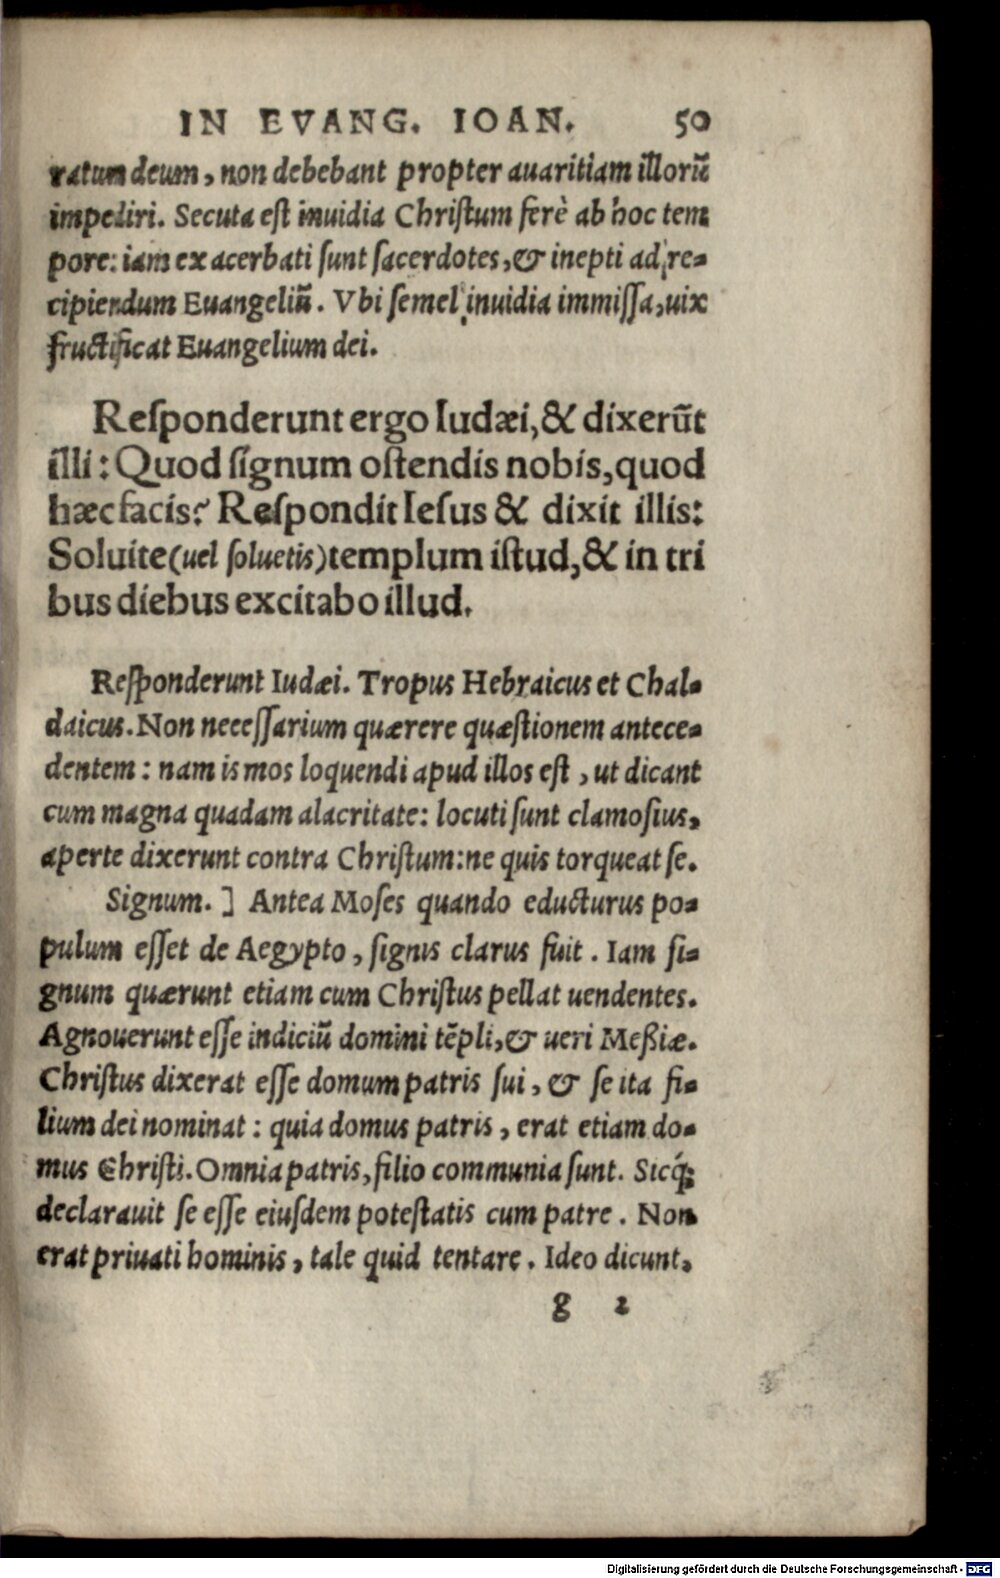 IN EVANG. IOAN. 50
ratum deum, non debebant propter auaritiam illorũ
impediri. Secuta eſt inuidia Chriſtum ferè ab hoc tem
pore: iam exacerbati ſunt ſacerdotes, & inepti ad re-
cipiendum Euangeliũ. Vbi ſemel inuidia immiſſa, uix
fructificat Euangelium dei.
Reſponderunt ergo Iudæi, & dixerũt
illi: Quod ſignum oſtendis nobis, quod
hæc facis? Reſpondit Ieſus & dixit illis:
Soluite (uel ſoluetis) templum iſtud, & in tri
bus diebus excitabo illud.
Reſponderunt Iudæi. Tropus Hebraicus et Chal-
daicus. Non neceſſarium quærere quæſtionem antece-
dentem: nam is mos loquendi apud illos eſt, ut dicant
cum magna quadam alacritate: locuti ſunt clamoſius,
aperte dixerunt contra Chriſtum: ne quis torqueat ſe.
Signum. ] Antea Moſes quando educturus po-
pulum eſſet de Aegypto, ſignis clarus fuit. Iam ſi-
gnum quærunt etiam cum Chriſtus pellat uendentes.
Agnouerunt eſſe indiciũ domini tẽpli, & ueri Meßiæ.
Chriſtus dixerat eſſe domum patris ſui, & ſe ita fi-
lium dei nominat: quia domus patris, erat etiam do-
mus Chriſti. Omnia patris, filio communia ſunt. Sicq́;
declarauit ſe eſſe eiuſdem poteſtatis cum patre. Non
erat priuati hominis, tale quid tentare. Ideo dicunt,
g 2
Digitalisierung gefördert durch die Deutsche Forschungsgemeinschaft - DFG